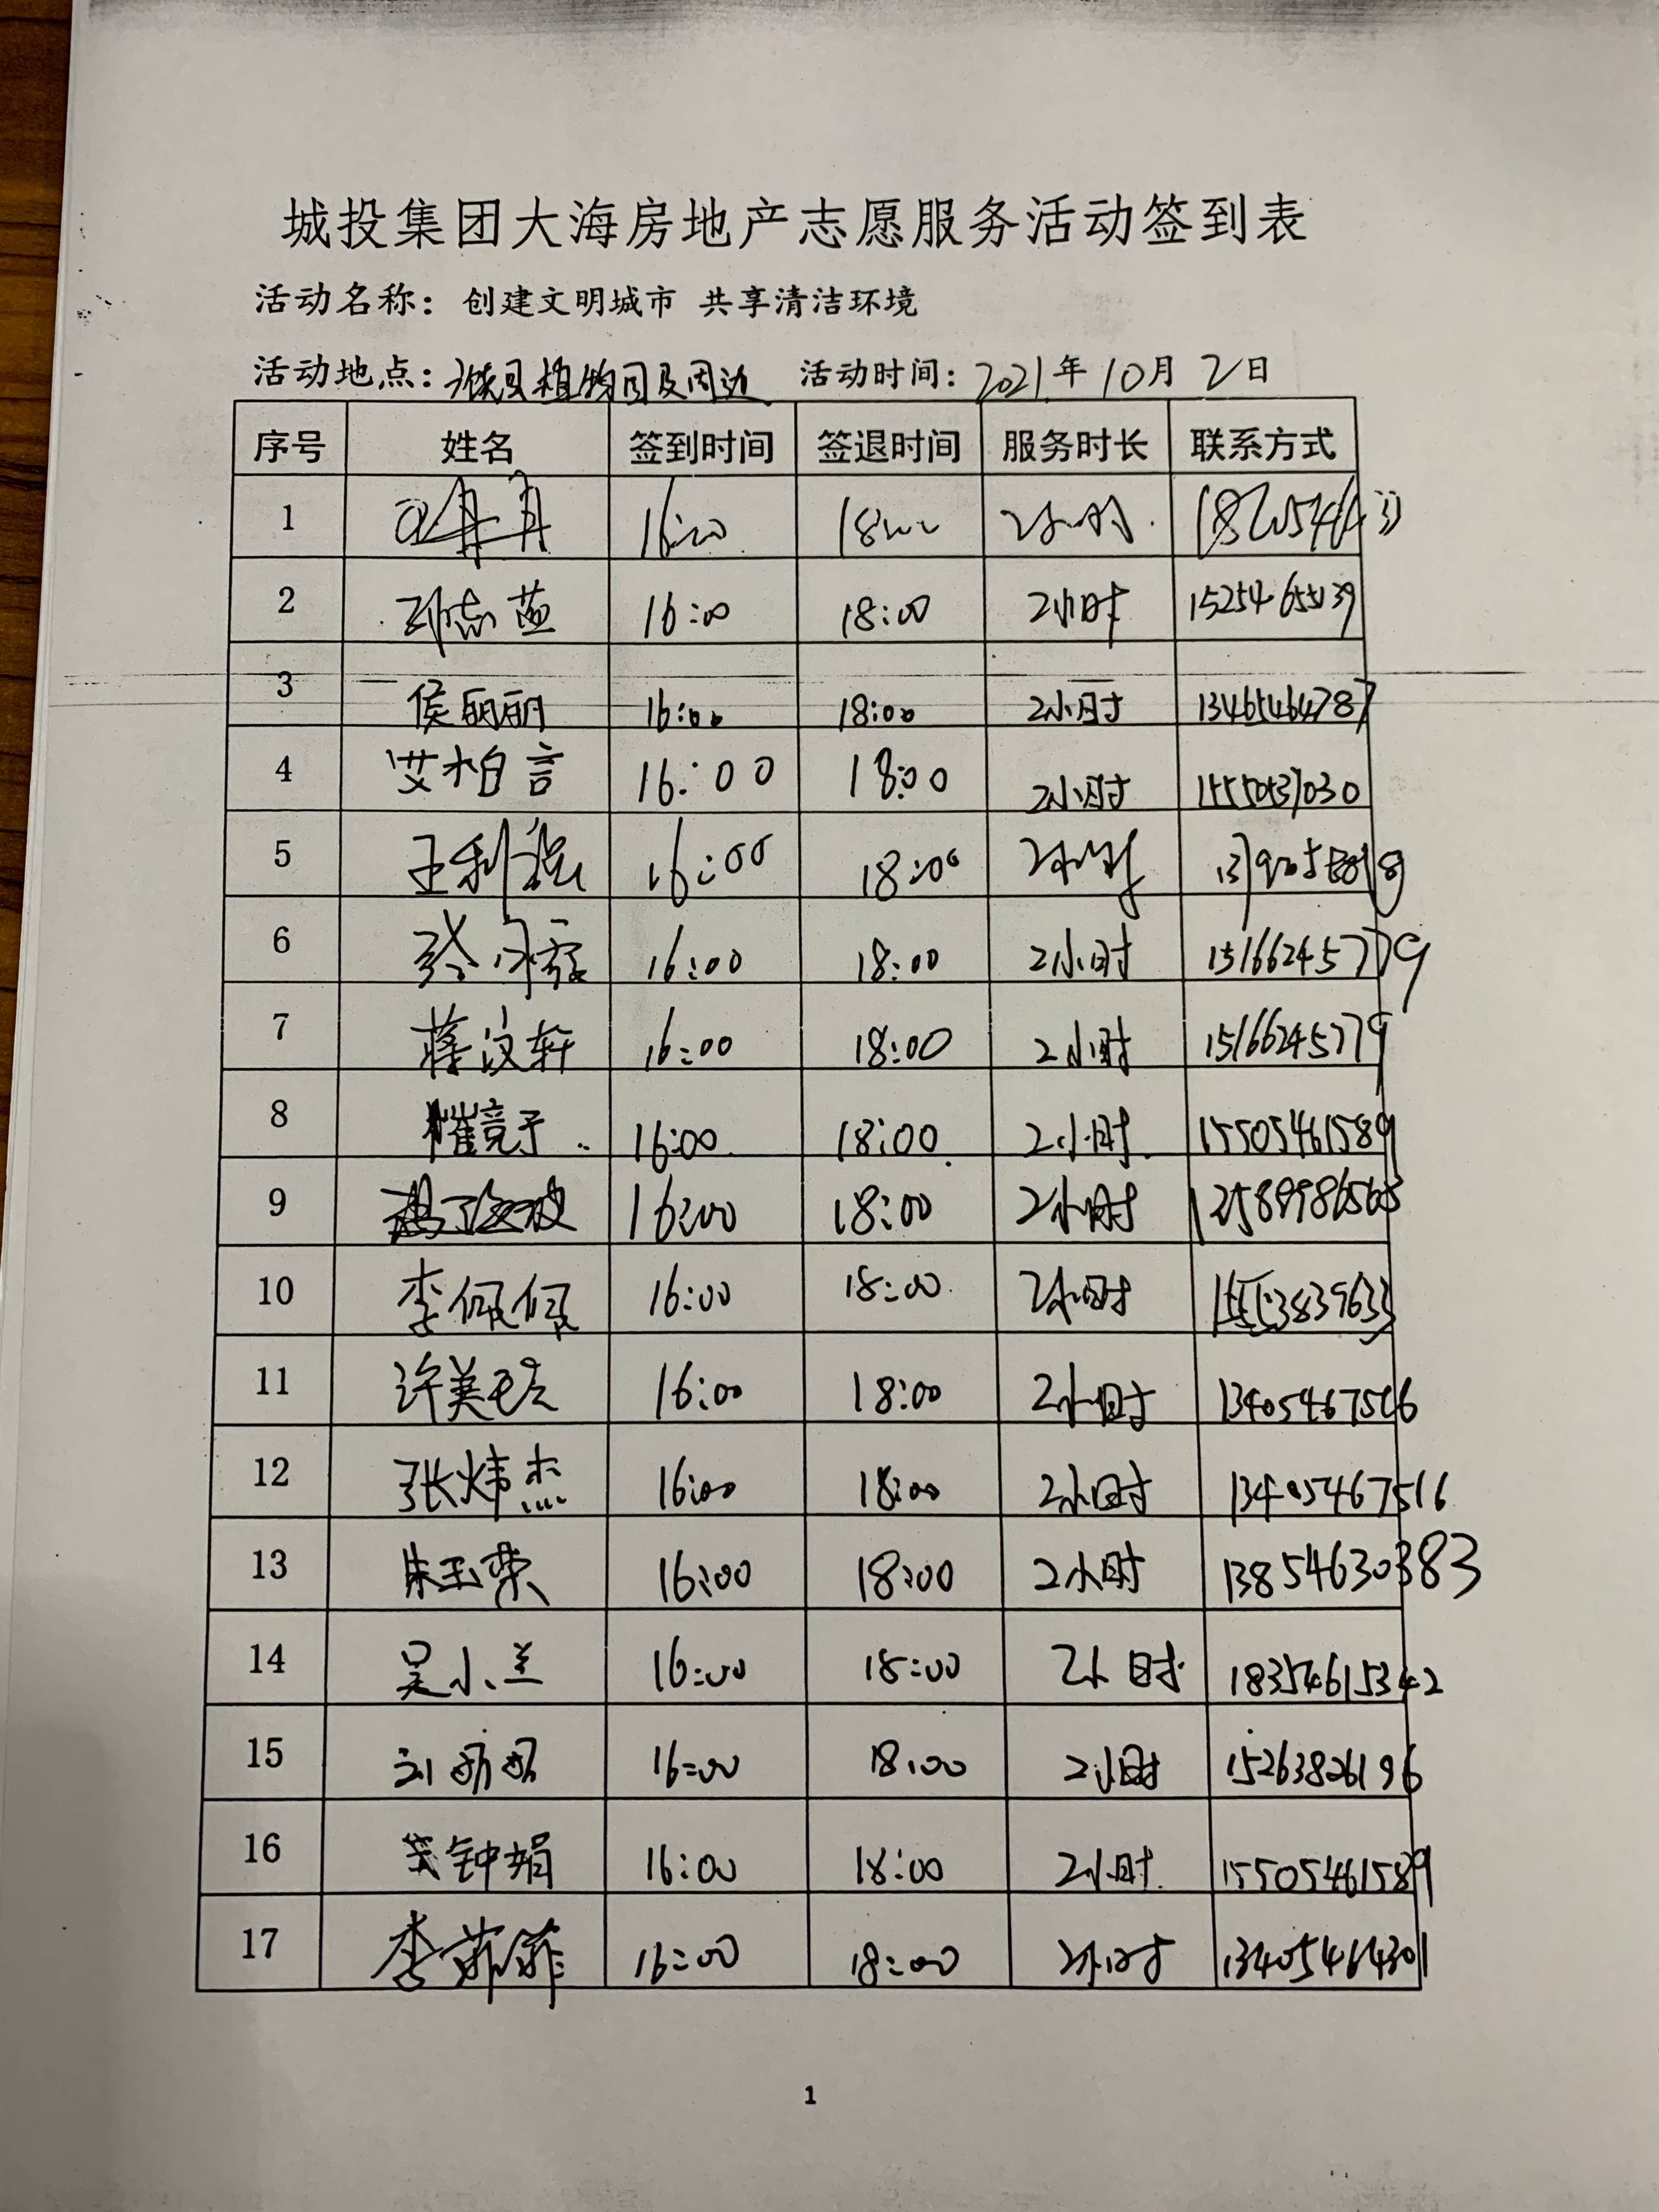 城投集团大海房地产志愿服务活动签到表
活动名称：创建文明城市 共享清洁环境
活动地点：植物园及周边 活动时间：2021年10月2日
序号 姓名 签到时间 签退时间 服务时长 联系方式
1 16:00 18:00 2小时
2 孙志燕 16:00 18:00 2小时
3 侯丽丽 16:00 18:00 2小时 13465464787
4 艾柏言 16:00 18:00 2小时
5 王利强 16:00 18:00 2小时
6 16:00 18:00 2小时 15166245779
7 蒋汶轩 16:00 18:00 2小时 15166245779
8 16:00 18:00 2小时 15505461589
9 16:00 18:00 2小时
10 李佩佩 16:00 18:00 2小时
11 16:00 18:00 2小时 13405467516
12 张炜杰 16:00 18:00 2小时 13405467516
13 朱玉荣 16:00 18:00 2小时 13854630383
14 吴小兰 16:00 18:00 2小时 18354615342
15 16:00 18:00 2小时 15263826196
16 钟娟 16:00 18:00 2小时 15505461589
17 李菲菲 16:00 18:00 2小时 13405464301
1